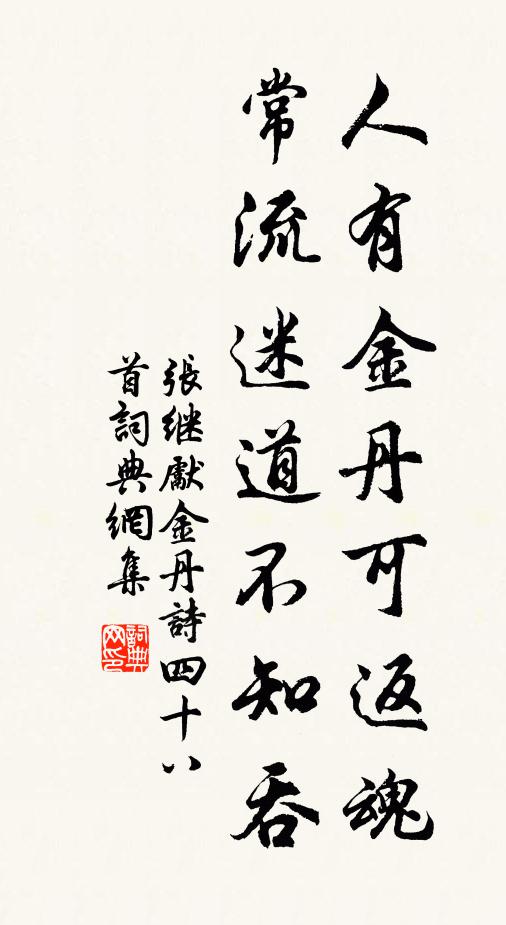 人有金丹可返魂
常流迷道不知吞
張继獻金丹詩四十八
首詞典網集
詞典
网印